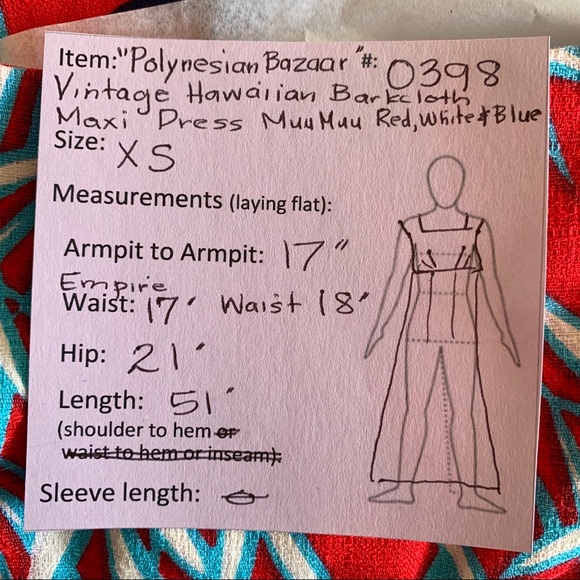 Item:"Polynesian Bazaar" #: 0398
Vintage Hawaiian Barkcloth
Maxi Dress MuuMuu Red, White & Blue
Size: XS
Measurements (laying flat):
Armpit to Armpit: 17"
Empire
Waist: 17' Waist 18'
Hip: 21'
Length: 51'
(shoulder to hem or
waist to hem or inseam):
Sleeve length: